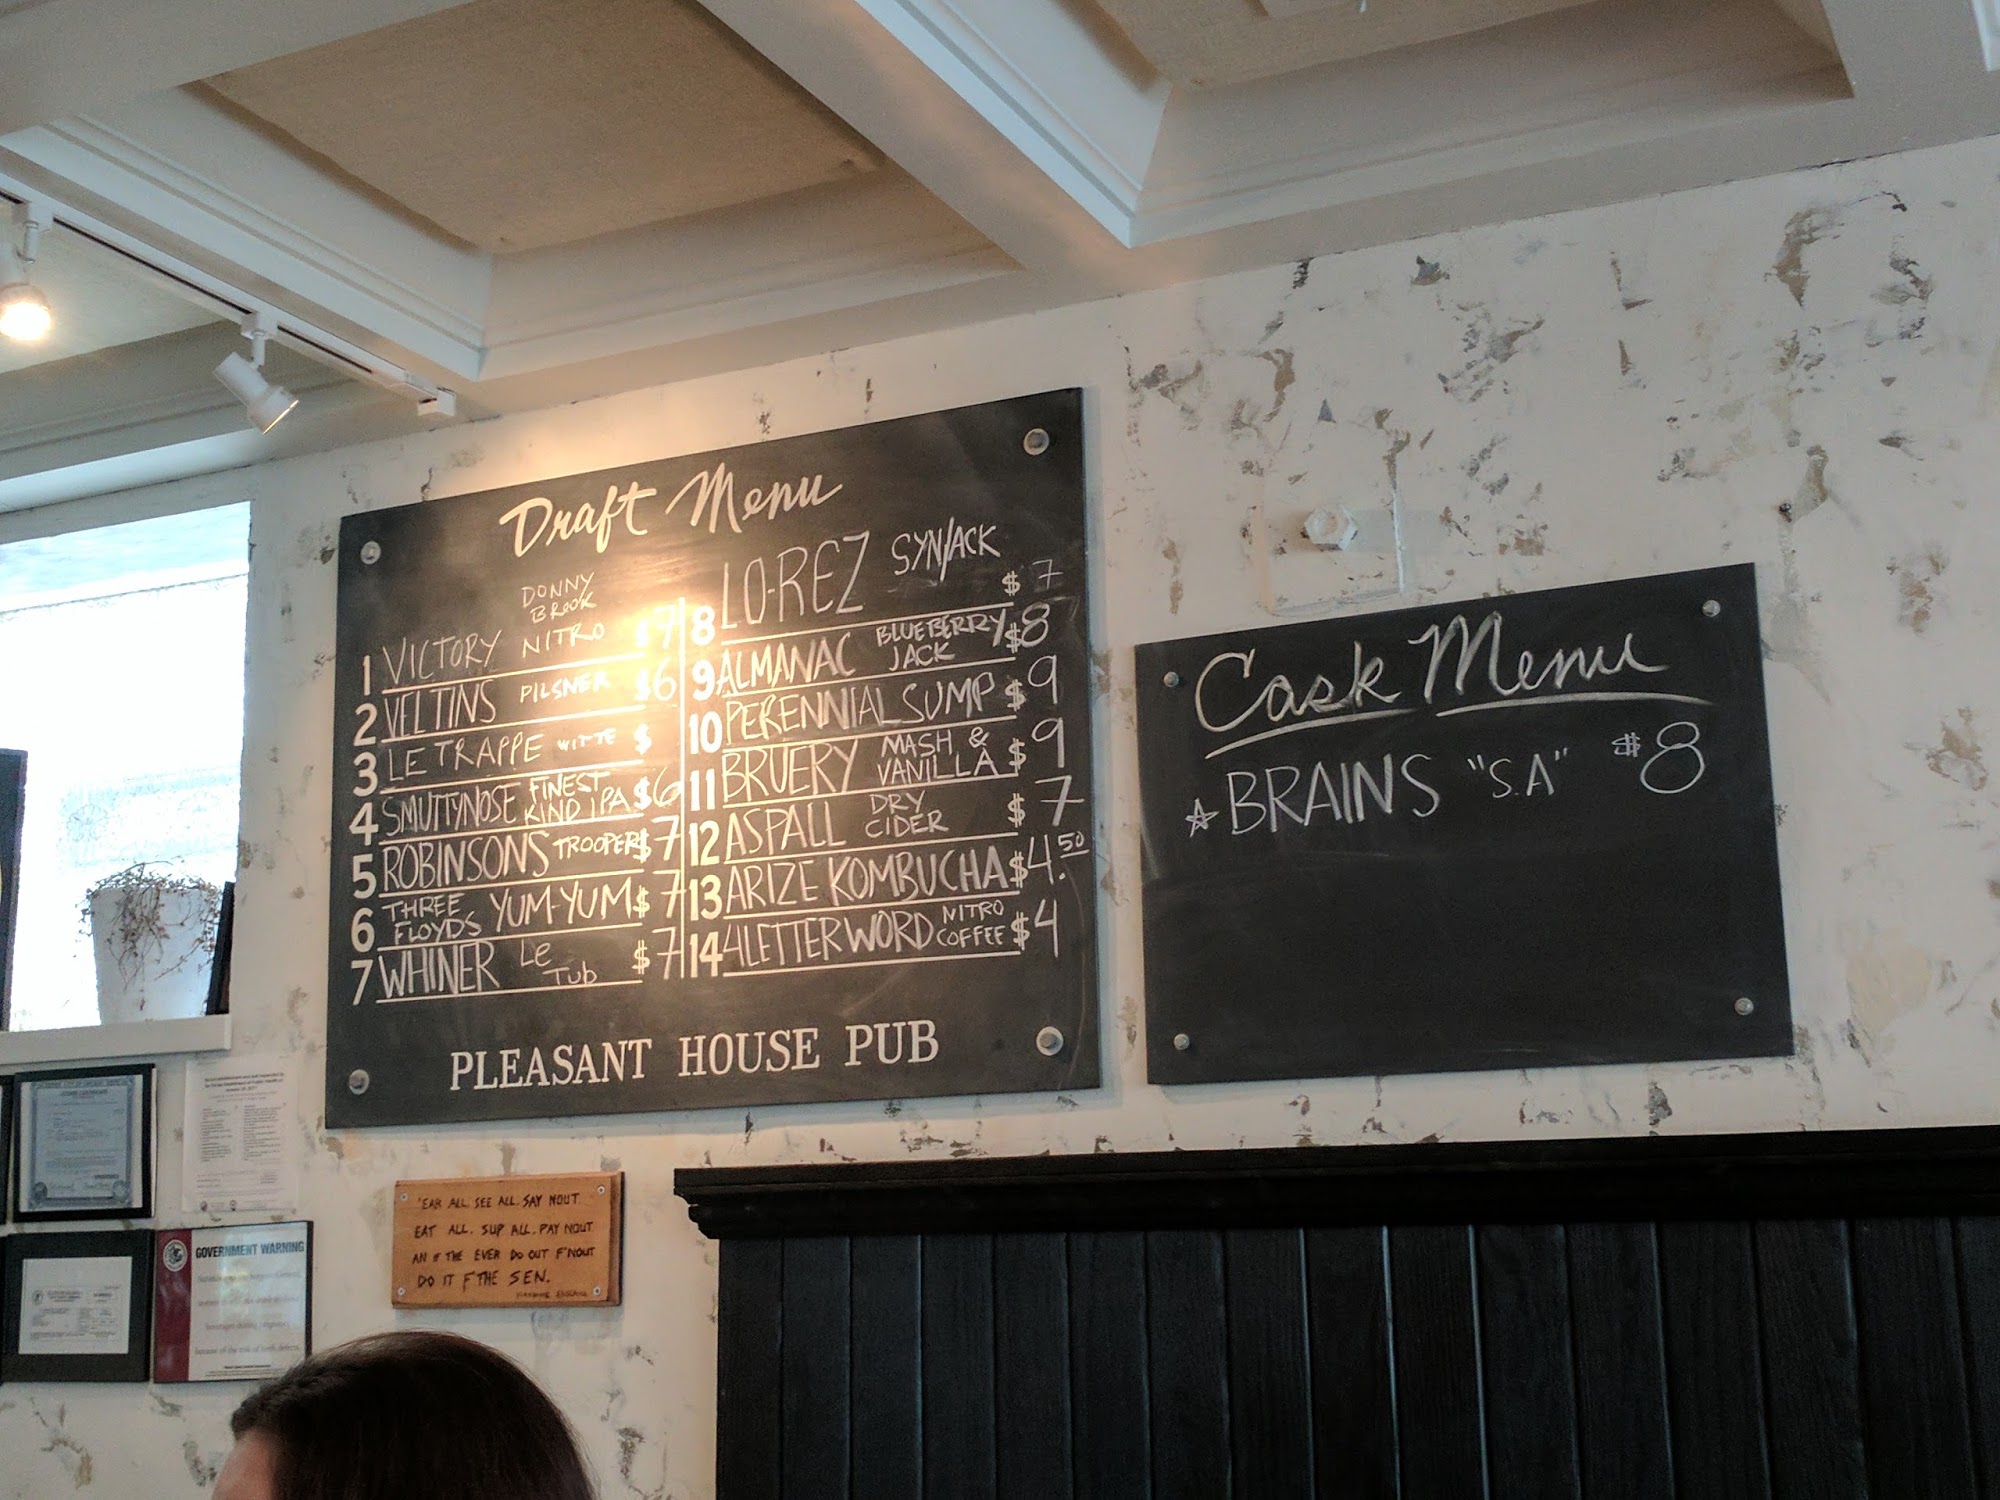 Draft Menu
1 VICTORY DONNY BROOK NITRO $7
2 VELTINS PILSNER $6
3 LE TRAPPE WITTE $
4 SMUTTYNOSE FINEST KIND IPA $6
5 ROBINSONS TROOPER $7
6 THREE FLOYDS YUM-YUM $7
7 WHINER Le Tub $7
8 LO-REZ SYNJACK $7
9 ALMANAC BLUEBERRY JACK $8
10 PERENNIAL SUMP $9
11 BRUERY MASH & VANILLA $9
12 ASPALL DRY CIDER $7
13 ARIZE KOMBUCHA $4.50
14 4LETTER WORD NITRO COFFEE $4
PLEASANT HOUSE PUB
Cask Menu
BRAINS "S.A" $8
"EAR ALL. SEE ALL. SAY NOUT
EAT ALL. SUP ALL. PAY NOUT
AN IF THE EVER DO OUT F'NOUT
DO IT F'THE SEN.
GOVERNMENT WARNING